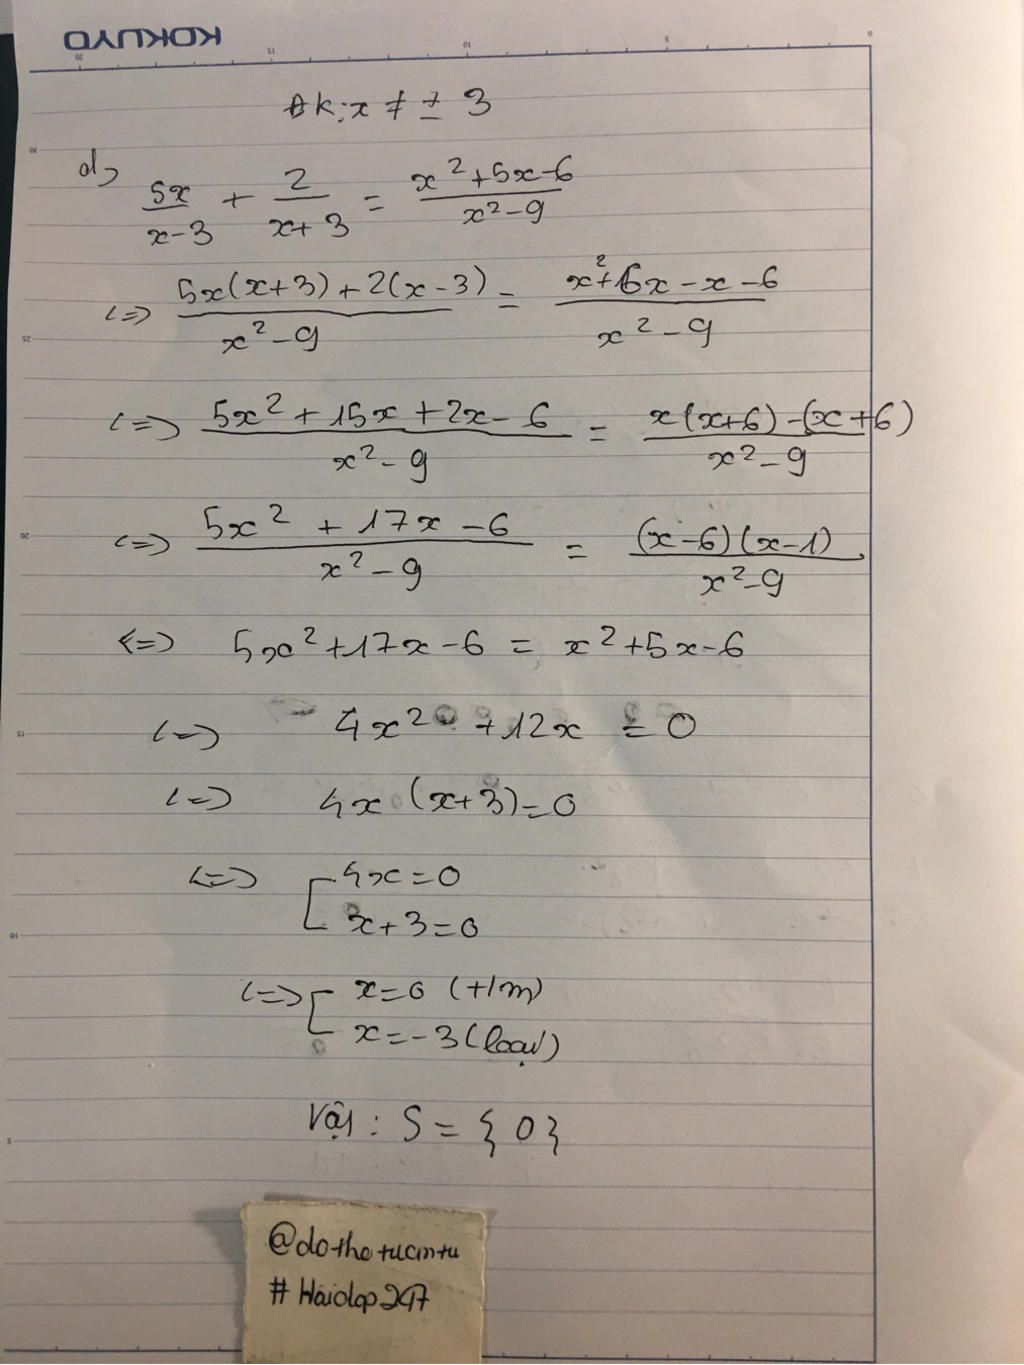 KOKUYO
ĐK: x ≠ ± 3
d) 5x/(x-3) + 2/(x+3) = (x²+5x-6)/(x²-9)
<=> (5x(x+3)+2(x-3))/(x²-9) = (x²+6x-x-6)/(x²-9)
<=> (5x²+15x+2x-6)/(x²-9) = (x(x+6)-(x+6))/(x²-9)
<=> (5x²+17x-6)/(x²-9) = ((x-6)(x-1))/(x²-9)
<=> 5x²+17x-6 = x²+5x-6
<=> 4x² +12x = 0
<=> 4x (x+3)=0
<=> [ 4x=0
x+3=0
<=> [ x=0 (t/m)
x=-3 (loại)
Vậy: S = {0}
@dothetucmtu
#Hoidap247